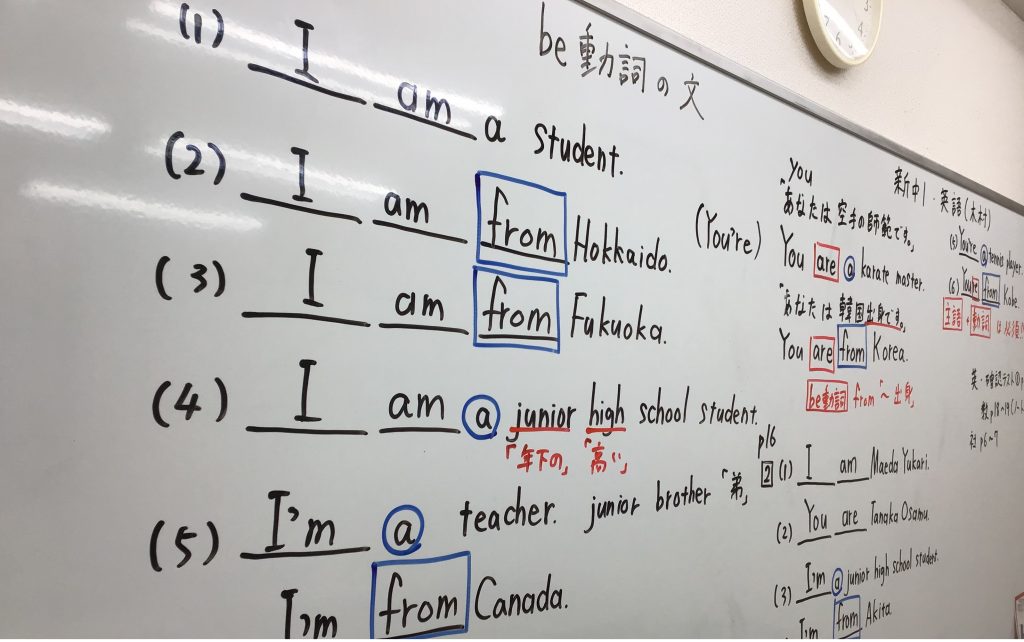 be動詞の文
(1) I am a student.
(2) I am from Hokkaido.
(3) I am from Fukuoka.
(4) I am a junior high school student.
「年下の」「高い」
(5) I'm a teacher. junior brother「弟」
I'm from Canada.
you
「あなたは空手の師範です。」
(You're) You are a karate master.
「あなたは韓国出身です。」
You are from Korea.
be動詞 from「~出身」
p16
2 (1) I am Maeda Yukari.
(2) You are Tanaka Osamu.
(3) I'm a junior high school student.
I'm from Akita.
新中1・英語(木村)
(5) You're a tennis player.
(6) You're from Kobe.
主語 + 動詞 は
社 p6~7
5
4
6
7